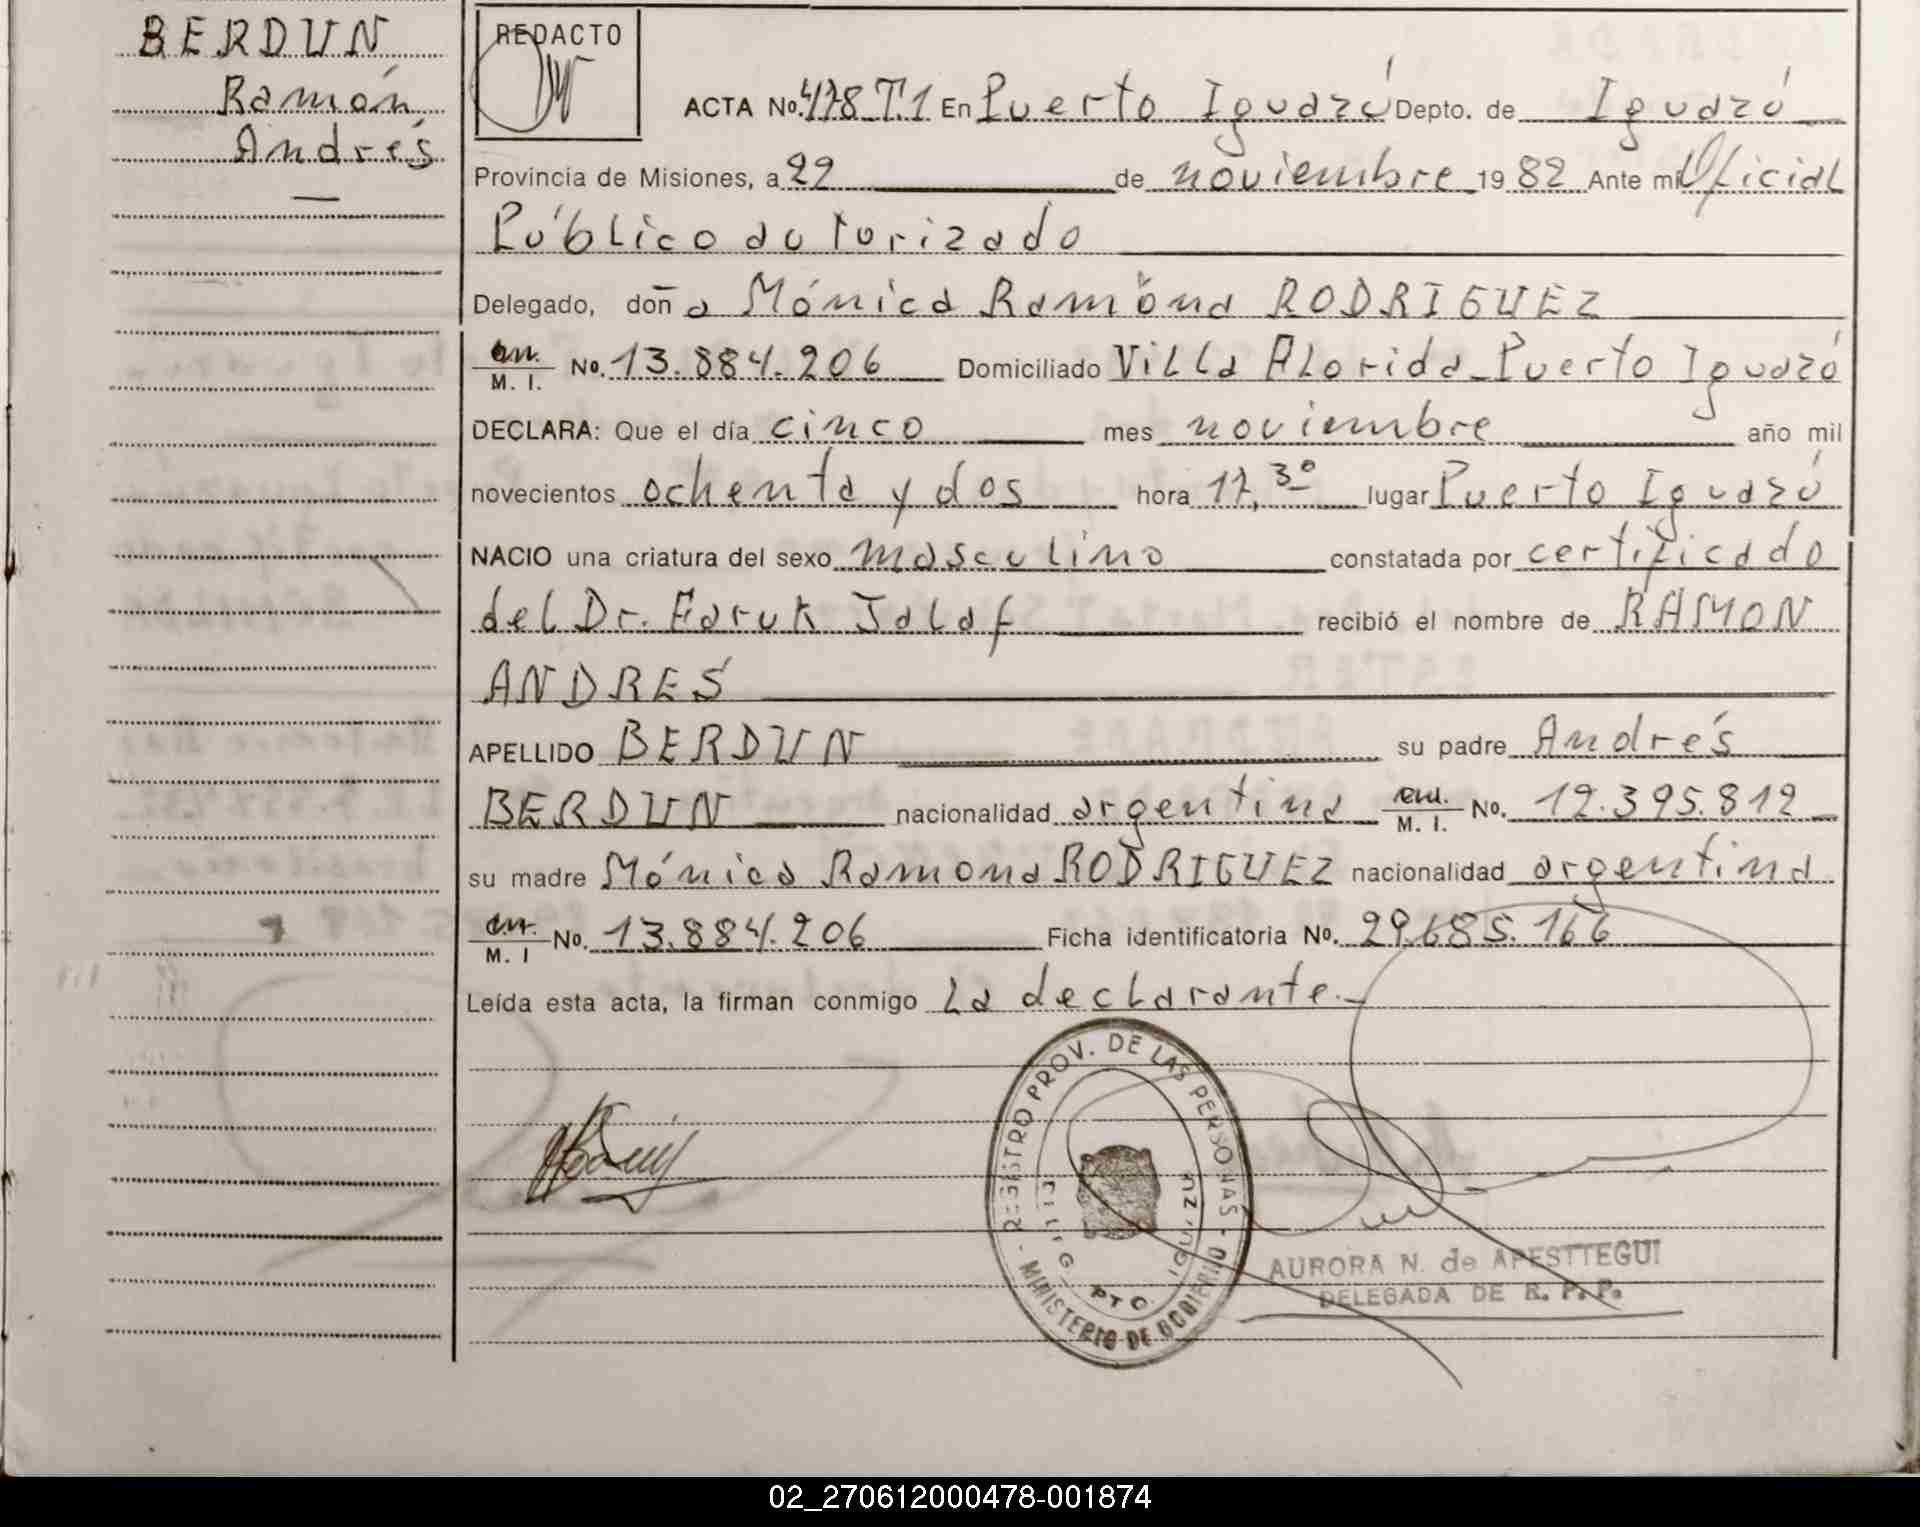 BERDUN
Ramón
Andrés
—
REDACTO
ACTA No. 478 T.1 En Puerto Iguazú Depto. de Iguazú
Provincia de Misiones, a 22 de noviembre 1982 Ante mi Oficial
Público autorizado
Delegado, doña Mónica Ramona RODRIGUEZ
M. I. No. 13.884.206 Domiciliado Villa Florida_Puerto Iguazú
DECLARA: Que el día cinco mes noviembre año mil
novecientos ochenta y dos hora 17,30 lugar Puerto Iguazú
NACIO una criatura del sexo masculino constatada por certificado
del Dr. Faruk Jalaf recibió el nombre de RAMON
ANDRES
APELLIDO BERDUN su padre Andrés
BERDUN nacionalidad argentina M. I. No. 12.395.812
su madre Mónica Ramona RODRIGUEZ nacionalidad argentina
M. I No. 13.884.206 Ficha identificatoria No. 29.685.166
Leída esta acta, la firman conmigo la declarante.-
REGISTRO PROV. DE LAS PERSONAS - MINISTERIO DE GOBIERNO -
PTO. IGUAZU
AURORA N. de APESTTEGUI
DELEGADA DE R. P. P.
02_270612000478-001874